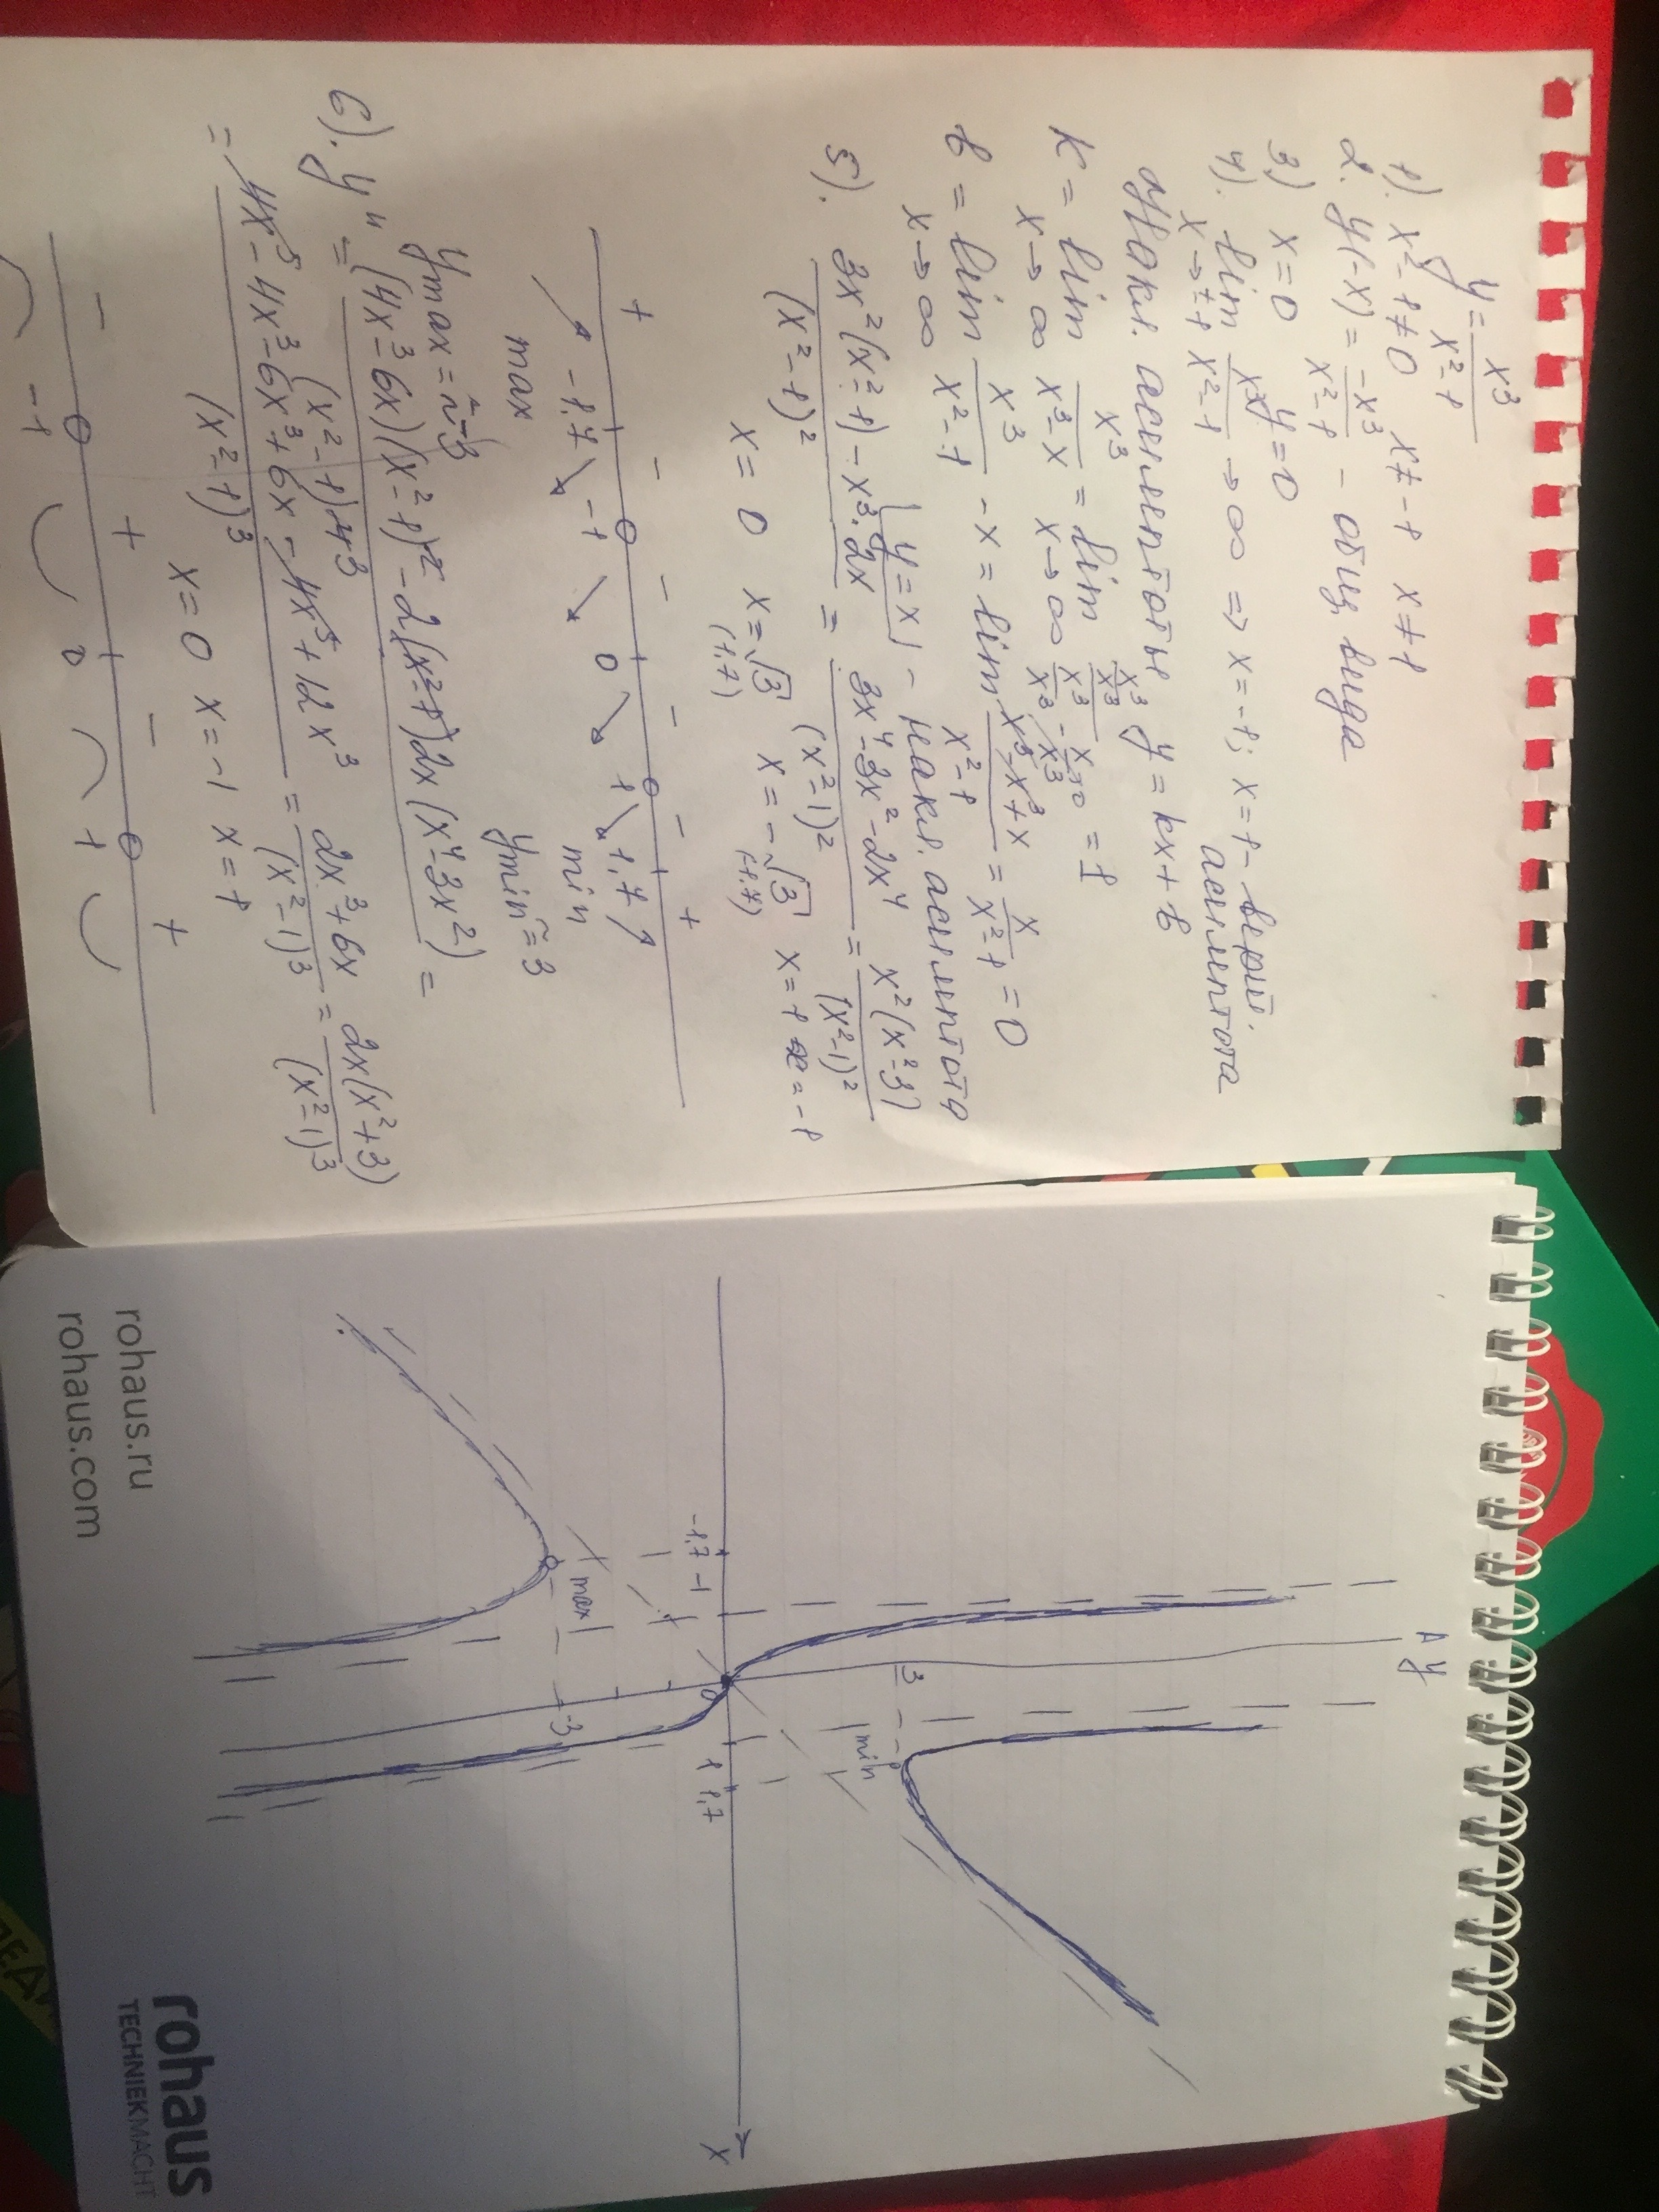 y = x³/(x²-1)
1). x²-1≠0 x≠-1 x≠1
2. y(-x) = -x³/(x²-1) - общ. вида
3) x=0 y=0
4). lim x→±1 x³/(x²-1) → ∞ ⇒ x=-1; x=1 - верт. асимптота
накл. асимптоты y = kx + b
k = lim x→∞ x³/(x³-x) = lim x→∞ (x³/x³)/(x³/x³ - x/x³) = 1
b = lim x→∞ x³/(x²-1) - x = lim (x³-x³+x)/(x²-1) = x/(x²-1) = 0
y=x - накл. асимптота
5). (3x²(x²-1) - x³·2x)/(x²-1)² = (3x⁴-3x²-2x⁴)/(x²-1)² = x²(x²-3)/(x²-1)²
x=0 x=√3 x=-√3 x=1 x=-1
(1,7) (-1,7)
+ - - - - +
-1,7 -1 0 1 1,7
max min
ymax ≈ -3 ymin ≈ 3
6). y'' = ((4x³-6x)(x²-1)² - 2(x²-1)2x(x⁴-3x²))/(x²-1)⁴³ =
= (4x⁵-4x³-6x³+6x-4x⁵+12x³)/(x²-1)³ = (2x³+6x)/(x²-1)³ = 2x(x²+3)/(x²-1)³
x=0 x=-1 x=1
- + - +
-1 0 1
y
3
min
-1,7 -1 0 1 1,7 x
max
-3
rohaus.ru
rohaus.com
rohaus
TECHNIEKMACHT